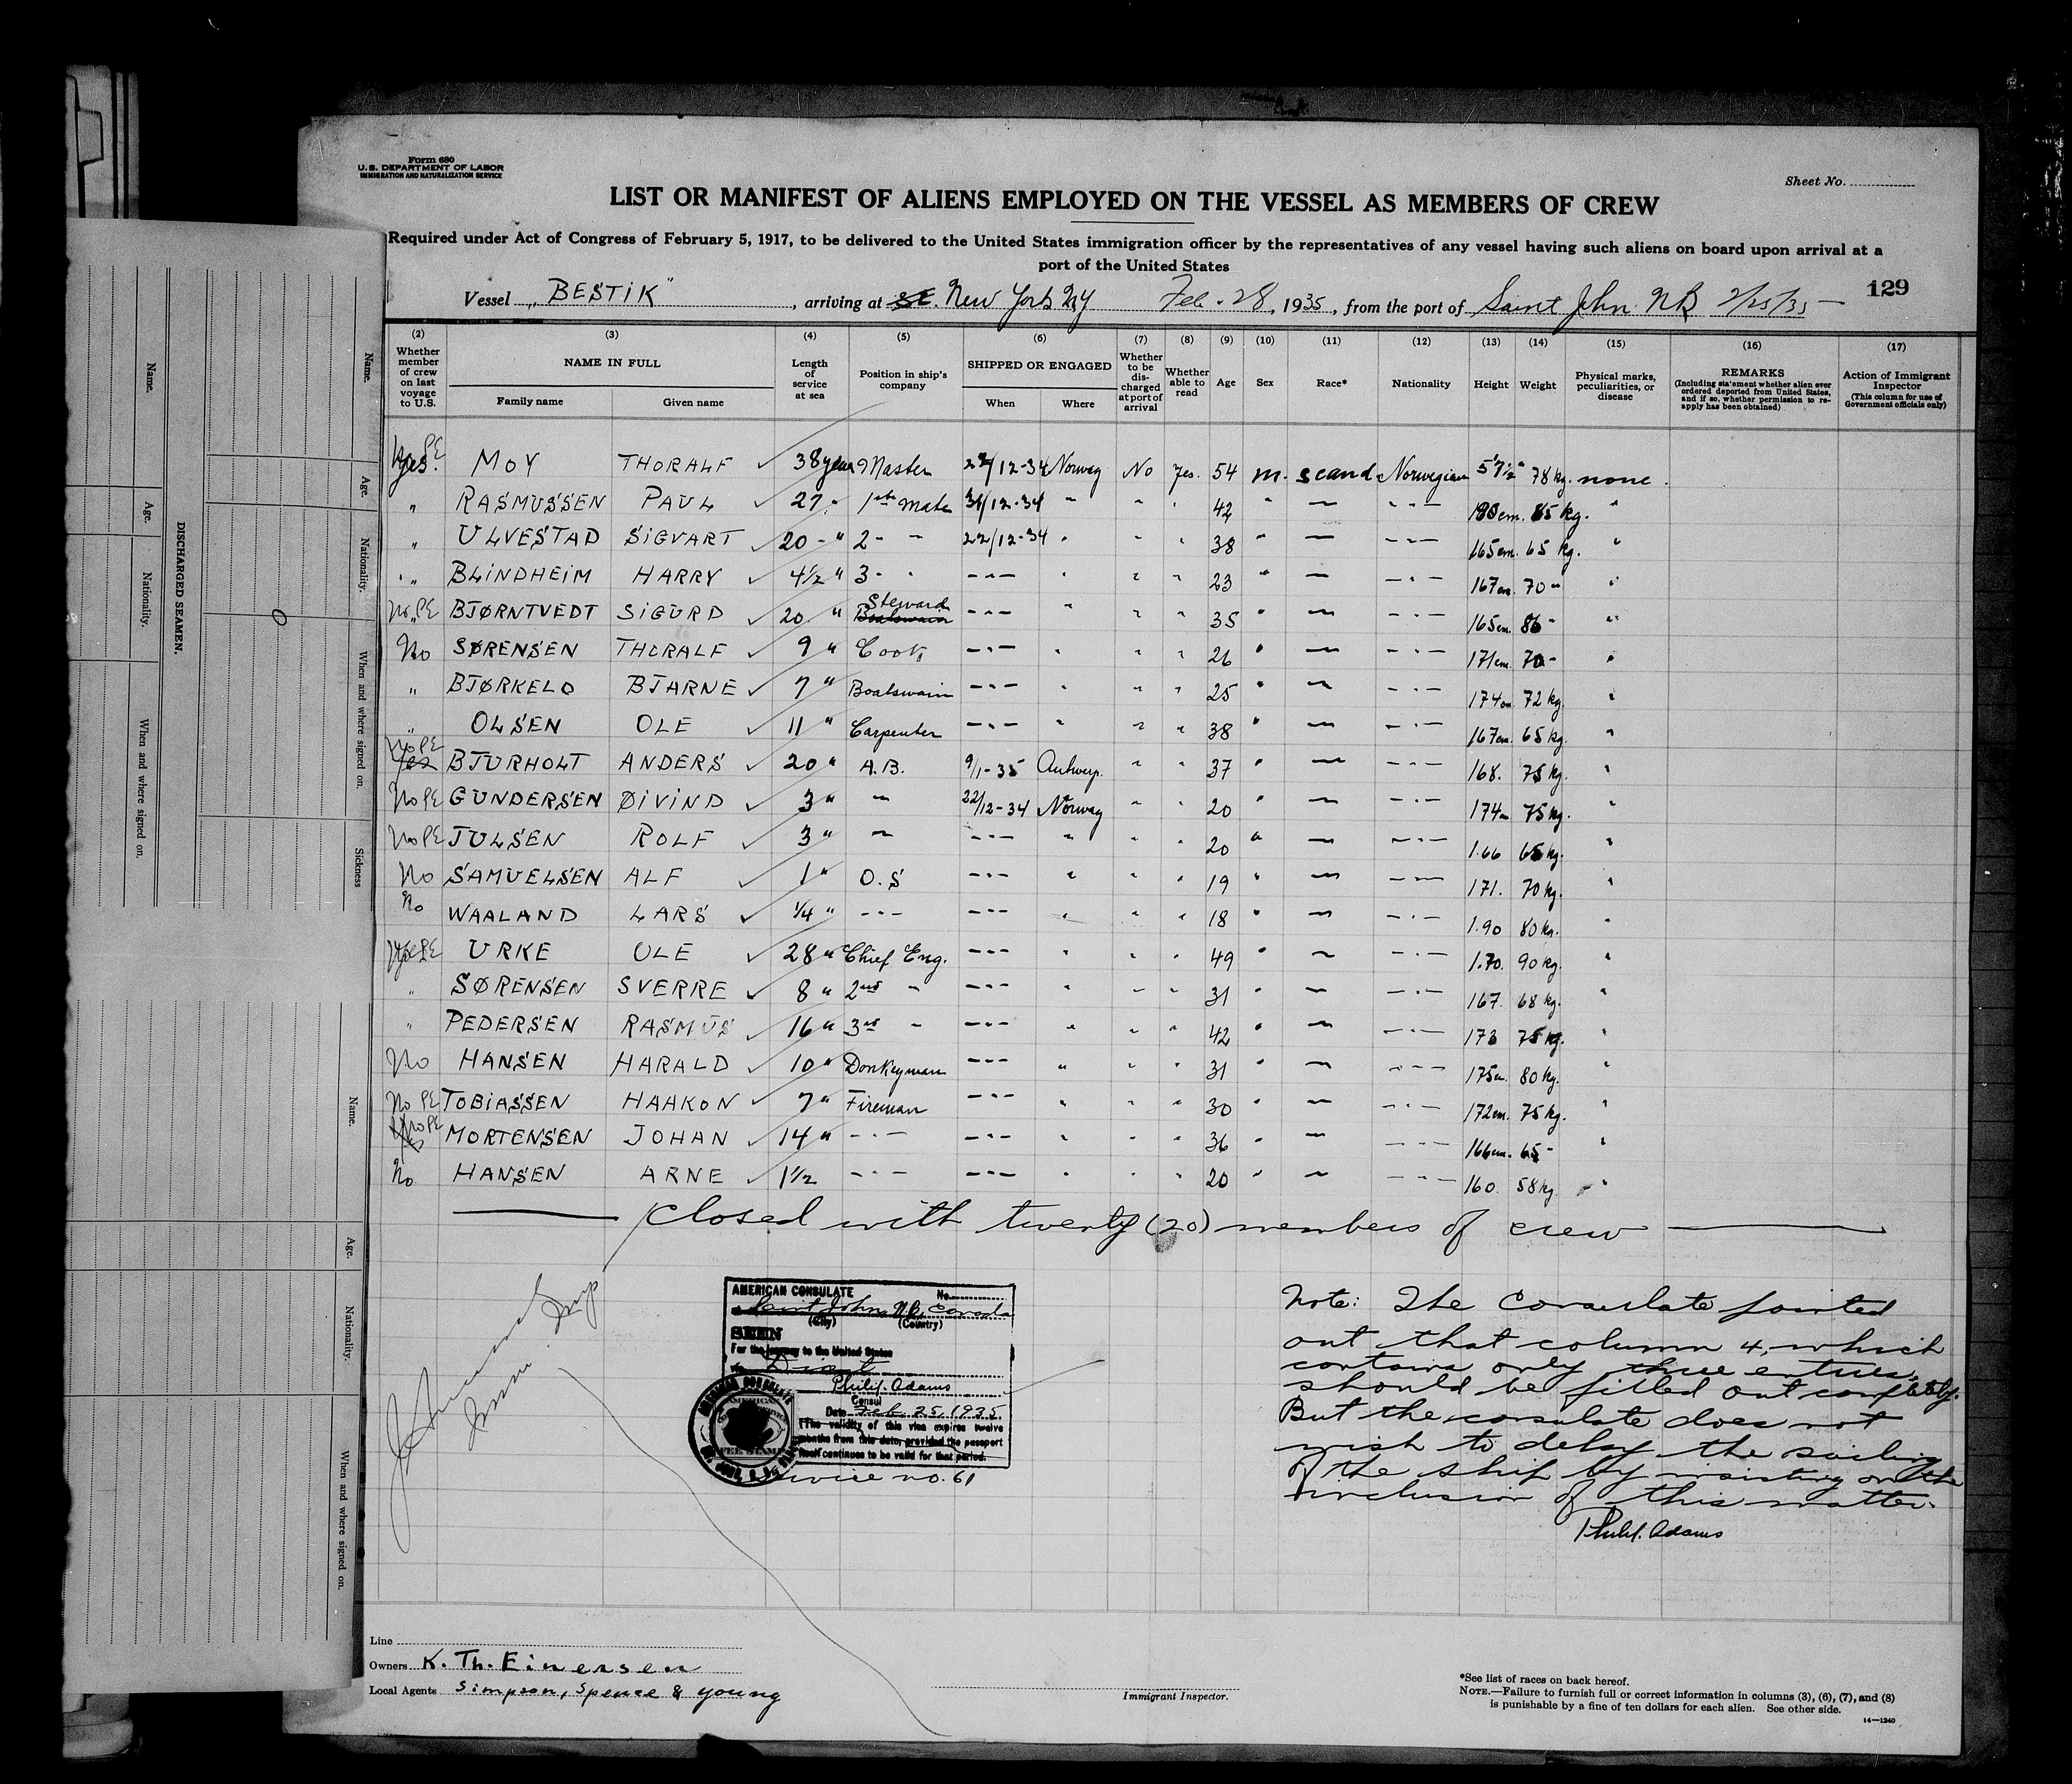 Form 680
U. S. DEPARTMENT OF LABOR
IMMIGRATION AND NATURALIZATION SERVICE
Sheet No.
LIST OR MANIFEST OF ALIENS EMPLOYED ON THE VESSEL AS MEMBERS OF CREW
Required under Act of Congress of February 5, 1917, to be delivered to the United States immigration officer by the representatives of any vessel having such aliens on board upon arrival at a
port of the United States
129
Vessel „BESTIK" , arriving at New York NY Feb. 28, 1935, from the port of Saint John NB 2/25/35
(2) (3) (4) (5) (6) (7) (8) (9) (10) (11) (12) (13) (14) (15) (16) (17)
Whether member of crew on last voyage to U.S.
NAME IN FULL
Family name Given name
Length of service at sea
Position in ship's company
SHIPPED OR ENGAGED
When Where
Whether to be discharged at port of arrival
Whether able to read
Age
Sex
Race*
Nationality
Height
Weight
Physical marks, peculiarities, or disease
REMARKS
(Including statement whether alien ever ordered deported from United States, and if so, whether permission to reapply has been obtained)
Action of Immigrant Inspector
(This column for use of Government officials only)
Yes. MOY THORALF ✓ 38 years Master 22/12-34 Norway No Yes. 54 m. scand. Norwegian 5'7½" 78 kg. none.
" RASMUSSEN PAUL 27 - 1st mate 31/12-34 " " " 42 " — - - — 180 cm. 85 kg. "
" ULVESTAD SIGVART ✓ 20 - " 2 - - 22/12-34 " " " 38 " — - - — 165 cm. 65 kg. "
" BLINDHEIM HARRY ✓ 4½ " 3 - " - - - " " " 23 " — - - — 167 cm. 70 - "
No PE BJØRNTVEDT SIGURD ✓ 20 " Steward - - - " " " 35 " — - - — 165 cm. 86 - "
No SØRENSEN THORALF ✓ 9 " Cook - - - " " " 26 " — - - — 171 cm. 70 - "
" BJØRKELO BJARNE ✓ 7 " Boatswain - - - " " " 25 " — - - — 174 cm 72 kg. "
" OLSEN OLE ✓ 11 " Carpenter - - - " " " 38 " — - - — 167 cm. 65 kg. "
No PE BJURHOLT ANDERS ✓ 20 " A.B. 9/1-35 Antwerp. " " 37 " — - - — 168. 75 kg. "
No PE GUNDERSEN ØIVIND ✓ 3 " — 22/12-34 Norway " " 20 " — - - — 174 75 kg. "
No PE JULSEN ROLF ✓ 3 " — - - - " " " 20 " — - - — 1.66 65 kg. "
No SAMUELSEN ALF ✓ 1 " O.S - - - " " " 19 " — - - — 171. 70 kg. "
No WAALAND LARS ✓ ¼ " - - - - - - " " " 18 " — - - — 1.90 80 kg. "
URKE OLE ✓ 28 " Chief Eng. - - - " " " 49 " — - - — 1.70. 90 kg. "
" SØRENSEN SVERRE ✓ 8 " 2nd " - - - " " " 31 " — - - — 167. 68 kg. "
" PEDERSEN RASMUS ✓ 16 " 3rd " - - - " " " 42 " — - - — 173 75 kg. "
No HANSEN HARALD ✓ 10 " Donkeyman - - - " " " 31 " — - - — 175 80 kg. "
No PE TOBIASSEN HAAKON ✓ 7 " Fireman - - - " " " 30 " — - - — 172 cm. 75 kg. "
No PE MORTENSEN JOHAN ✓ 14 " - - - - - - " " " 36 " — - - — 166 cm. 65 - "
No HANSEN ARNE ✓ 1½ - - - - - - " " " 20 " — - - — 160. 58 kg. "
Closed with twenty (20) members of crew
AMERICAN CONSULATE No.
at Saint John, N.B. Canada
(City) (Country)
SEEN
For the journey to the United States
via Direct
Philip Adams
Consul
Date Feb. 25, 1935.
(The validity of this visa expires twelve
months from this date, provided the passport
itself continues to be valid for that period.
Service no. 61
Note: The Consulate pointed
out that column 4, which
contains only three entries,
should be filled out completely.
But the consulate does not
wish to delay the sailing
of the ship by insisting on the
inclusion of this matter.
Philip Adams
Line
Owners K. Th. Einersen
Local Agents Simpson, Spence & Young
Immigrant Inspector.
*See list of races on back hereof.
NOTE.—Failure to furnish full or correct information in columns (3), (6), (7), and (8)
is punishable by a fine of ten dollars for each alien. See other side.
14—1240
DISCHARGED SEAMEN.
Name. Age. Nationality. When and where signed on.
Name. Age. Nationality. When and where signed on. Sickness
0
Name. Age. Nationality. When and where signed on.